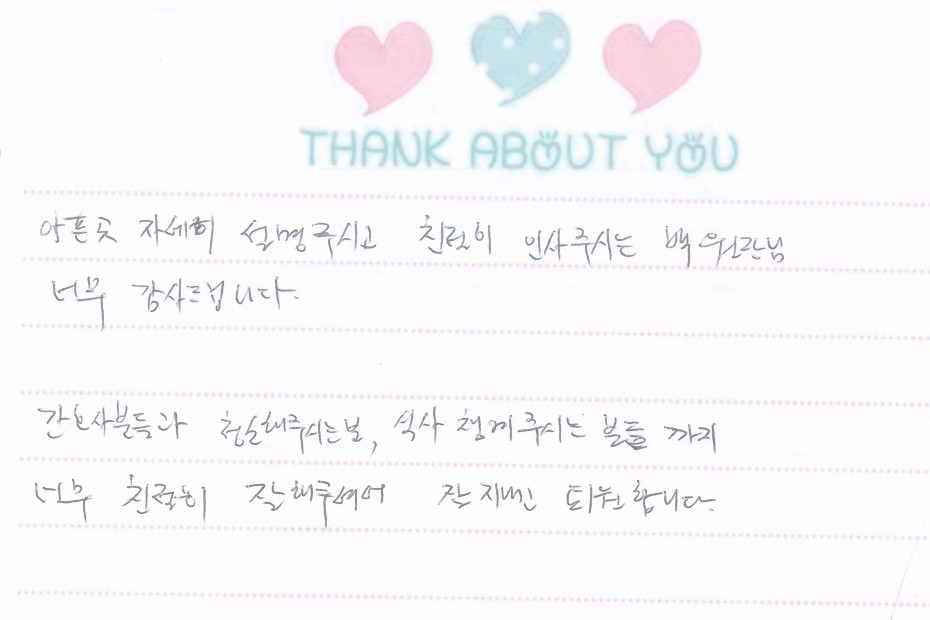 THANK ABOUT YOU
아픈곳 자세히 설명주시고 친절히 인사주시는 백원장님
너무 감사드립니다.
간호사분들과 청소해주시는분, 식사 챙겨주시는 분들 까지
너무 친절히 잘해주셔서 잘 지내다 퇴원합니다.